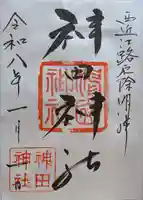 西近江路
神田神社
神田神社
令和八年一月
神田
神社